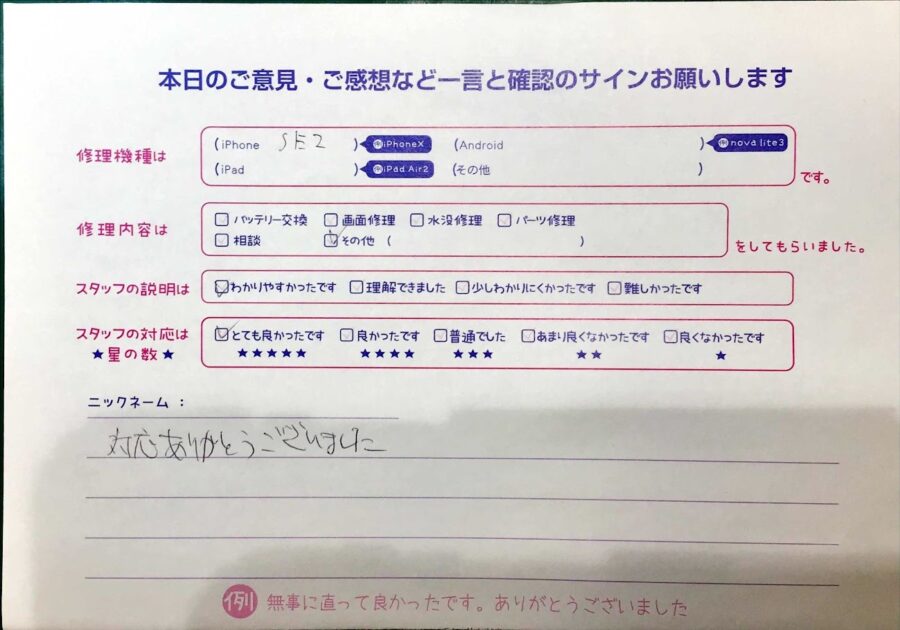 本日のご意見・ご感想など一言と確認のサインお願いします
修理機種は
(iPhone SE2 ) 例 iPhoneX (Android ) 例 nova lite3
(iPad ) 例 iPad Air2 (その他 )
です。
修理内容は
バッテリー交換 画面修理 水没修理 パーツ修理
相談 その他 ( )
をしてもらいました。
スタッフの説明は
わかりやすかったです 理解できました 少しわかりにくかったです 難しかったです
スタッフの対応は
★星の数★
とても良かったです 良かったです 普通でした あまり良くなかったです 良くなかったです
★★★★★ ★★★★ ★★★ ★★ ★
ニックネーム：
対応ありがとうございました
例 無事に直って良かったです。ありがとうございました